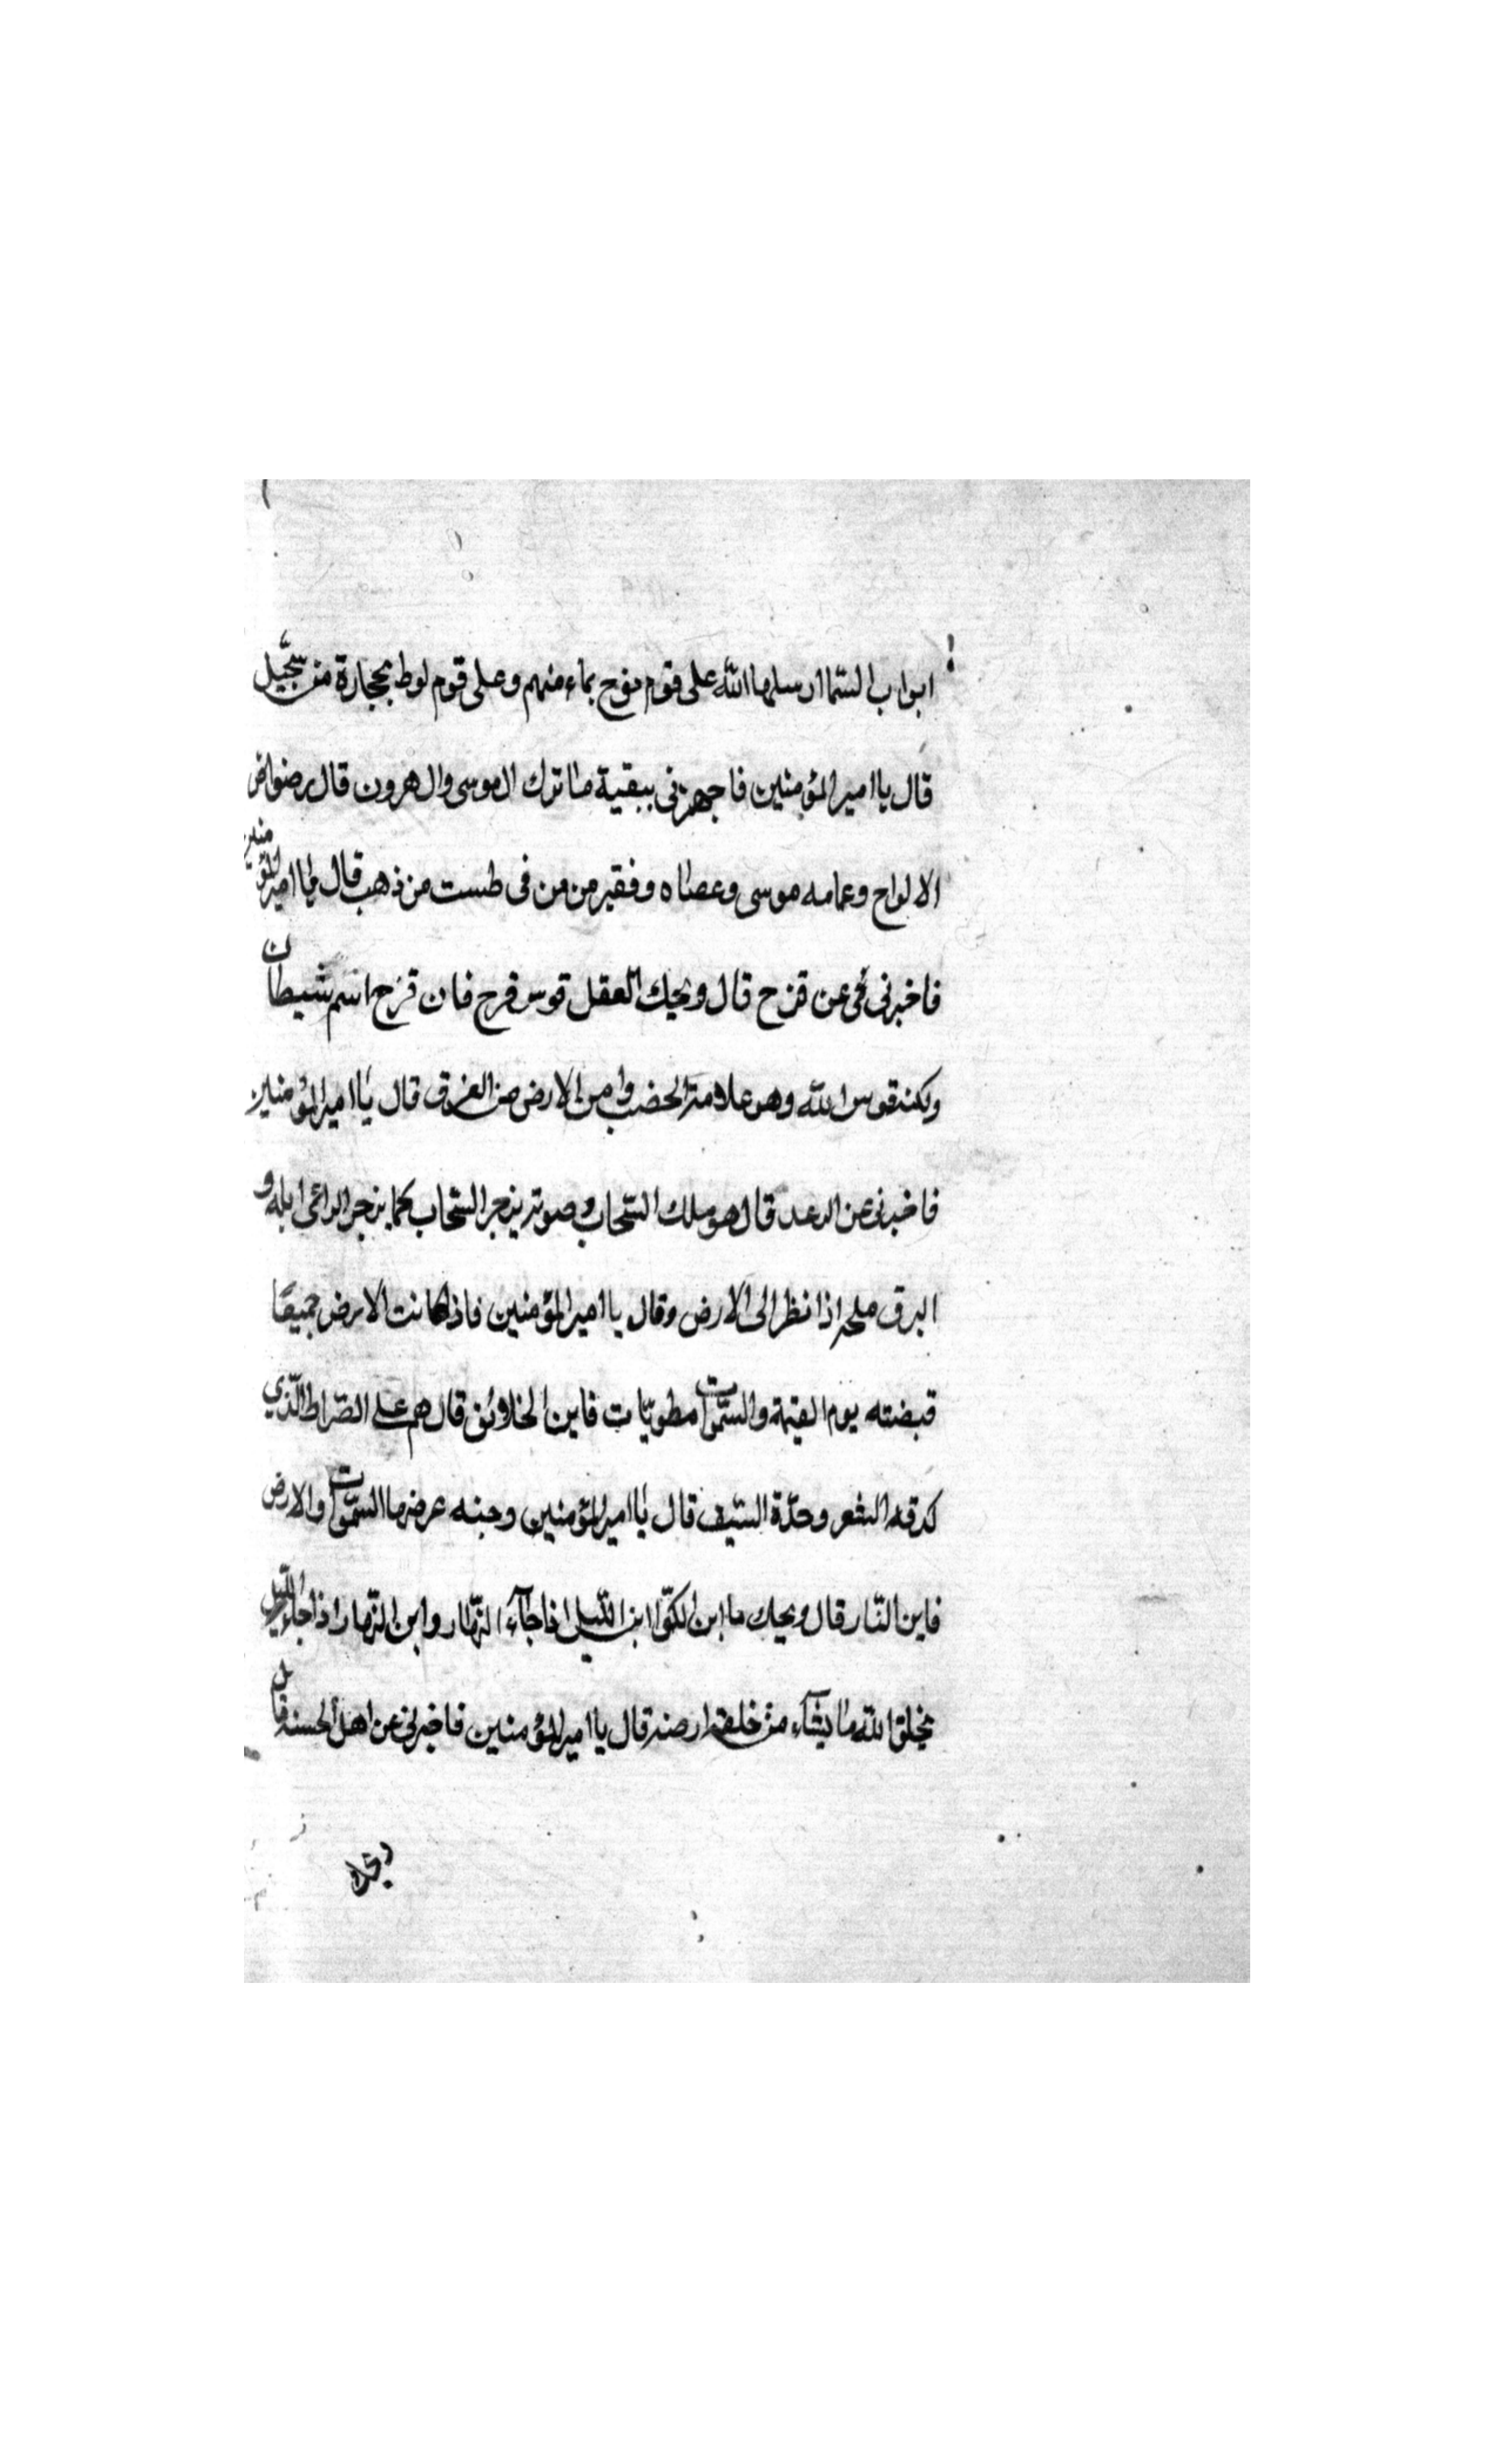 ابواب السّما ارسلها اللّه على قوم نوح بماء منهم وعلى قوم لوط بحجارة من سجّيل
قال يا امير المؤمنين فاجهزنى ببقية ما ترك ال موسى وال هرون قال رضواض
الالواح وعمامه موسى وعصاه وفقيز من من فى طست من ذهب قال يا امير المؤمنين
فاخبرنى عن قزح قال ويحك لا تقل قوس قزح فان قزح اسم شيطان
ولكنه قوس اللّه وهو علامة الخضب وامن الارض من الغرق قال يا امير المؤمنين
فاخبرنى عن الرعد قال هو ملك السّحاب وصوته يزجر السّحاب كما يزجر الراعى ابله و
البرق ملحه اذا نظر الى الارض وقال يا امير المؤمنين فاذا كانت الارض جميعًا
قبضته يوم القيمة والسّموات مطويّات فاين الخلائق قال هم على الصّراط الّذي
كدقه الشعر وحدّة السّيف قال يا امير المؤمنين وجنه عرضها السّموات والارض
فاين النّار قال ويحك يا ابن الكوّا اين اللّيل اذا جآء النّهار واين النّهار اذا جاء اللّيل
يخلق اللّه ما يشآء من خلقه ارضه قال يا امير المؤمنين فاخبرنى عن اهل الحسنه قال